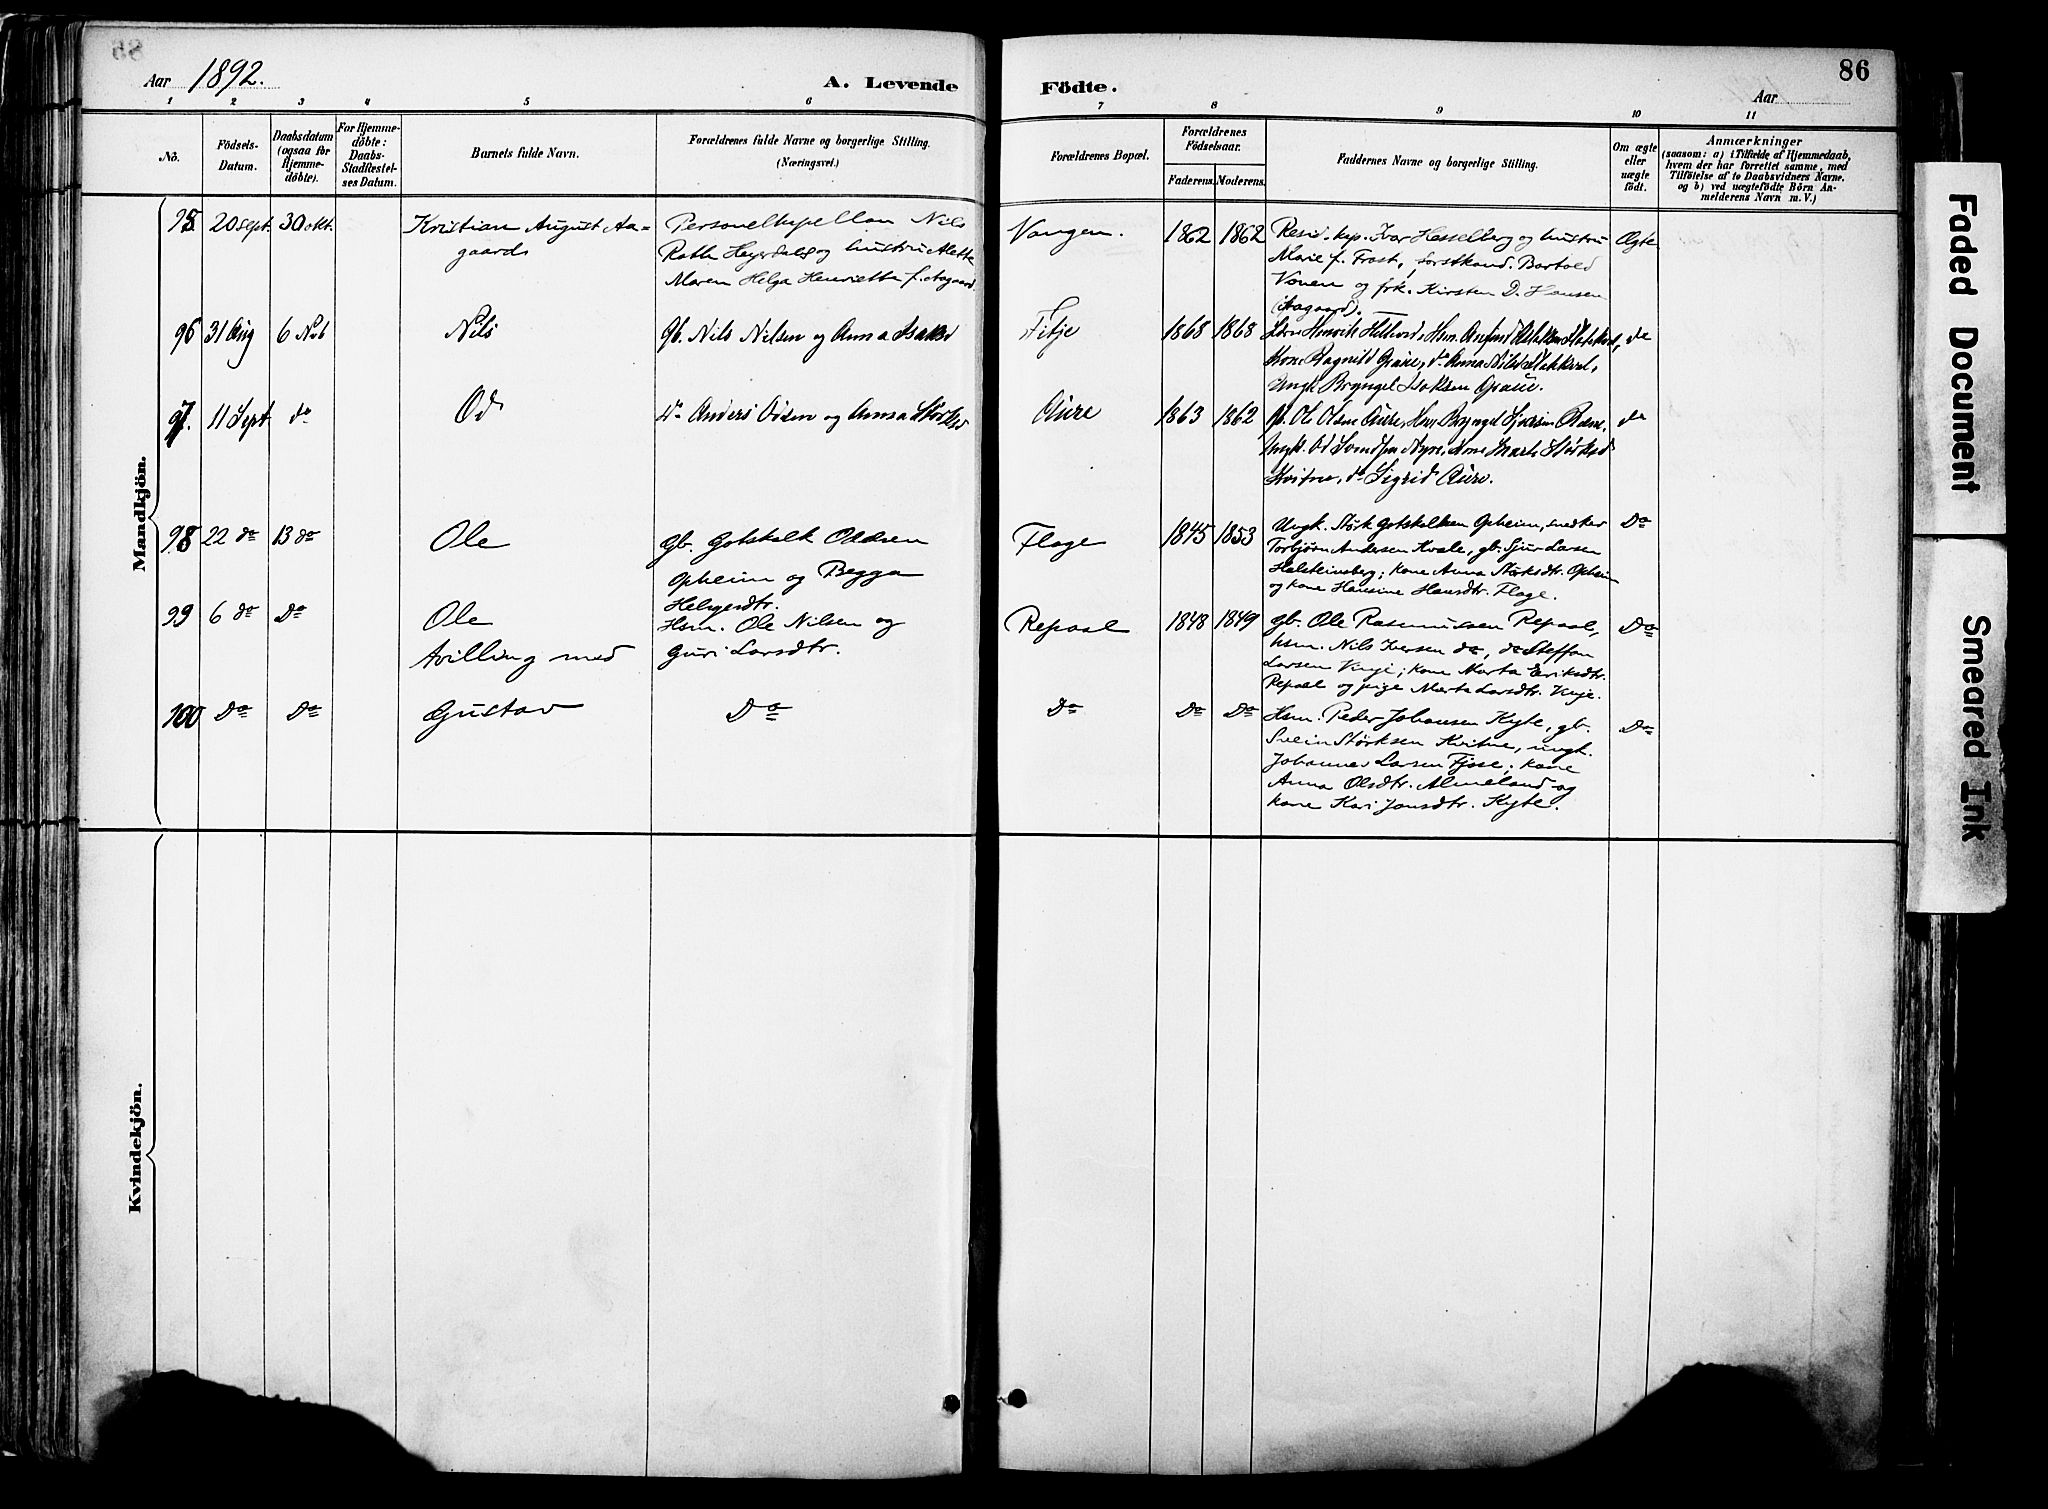 86
Aar 1892.
A. Levende
Födte.
Aar
1 2 3 4 5 6 7 8 9 10 11
No.
Födsels-
Datum.
Daabsdatum
(ogsaa for
Hjemme-
döbte).
For Hjemme-
döbte:
Daabs-
Stadfestel-
ses Datum.
Barnets fulde Navn.
Forældrenes fulde Navne og borgerlige Stilling.
(Næringsvei.)
Forældrenes Bopæl.
Forældrenes
Födselsaar.
Faderens. Moderens.
Faddernes Navne og borgerlige Stilling.
Om ægte
eller
uægte
födt.
Anmærkninger
(saasom: a) i Tilfælde af Hjemmedaab,
hvem der har forrettet samme, med
Tilföielse af to Daabsvidners Navne,
og b) ved uægtefödte Börn An-
melderens Navn m. V.)
Mandkjön.
95. 20 Sept. 30 okt.
Kristian August Aa-
gaard
Personelkapellan Nils
Rath Heyerdahl og hustru Aletta
Maren Helga Henrietta f. Aagaard.
Vangen. 1862 1862
Resid. kap. Ivar Hesselberg og hustru
Marie f. Frost, forstkand. Bartold
Vonen og frk. Kirsten D. Hansen
(Aagaard).
Ægte
96 31 Aug 6 Nov
Nils
gb. Nils Nilsen og Anna Isaksd
Fitje 1868 1868
Henrik Hsm.
Kone Ragnild Graue, do Anna Nilsd
Ungk. Bryngel Isaksen Graue.
do
97. 11 Sept. do
Od
do Anders Odsen og Anna Størksd
Aure 1863 1862
gb. Ole Olsen Aure, Hsm. Bryngel
Ungk. Od Kone Marta Størksd
Kvitne, do Sigrid Aure.
do
98 22 do 13 do
Ole
gb. Gotskalk Oddsen
Opheim og Begga
Helgesdtr.
Flage 1845 1853
Ungk. Størk Gotskalksen Opheim, snedker
Torbjørn Andersen Kvale, gb. Sjur Larsen
Helsteinsberg; kone Anna Størksdtr. Opheim
og kone Hansine Hansdtr. Flage.
Do
99 6 do Do
Ole
tvilling med
Hsm. Ole Nilsen og
Guri Larsdtr.
Repaal 1848 1849
gb. Ole Rasmussen Repaal,
hsm. Nils Iversen do, do Steffen
Larsen Vinje; kone Marta Eriksdtr.
Repaal og pige Marta Larsdtr. Vinje.
Do
100 Do Do
Gustav
Do
Do Do Do
Hsm. Peder Johansen Kyte, gb.
Svein Størksen Kvitne, ungk.
Johannes Larsen Fjose; kone
Anna Olsdtr. Almeland og
kone Kari Jonsdtr. Kyte.
Do
Kvindekjön.
Faded Document
Smeared Ink